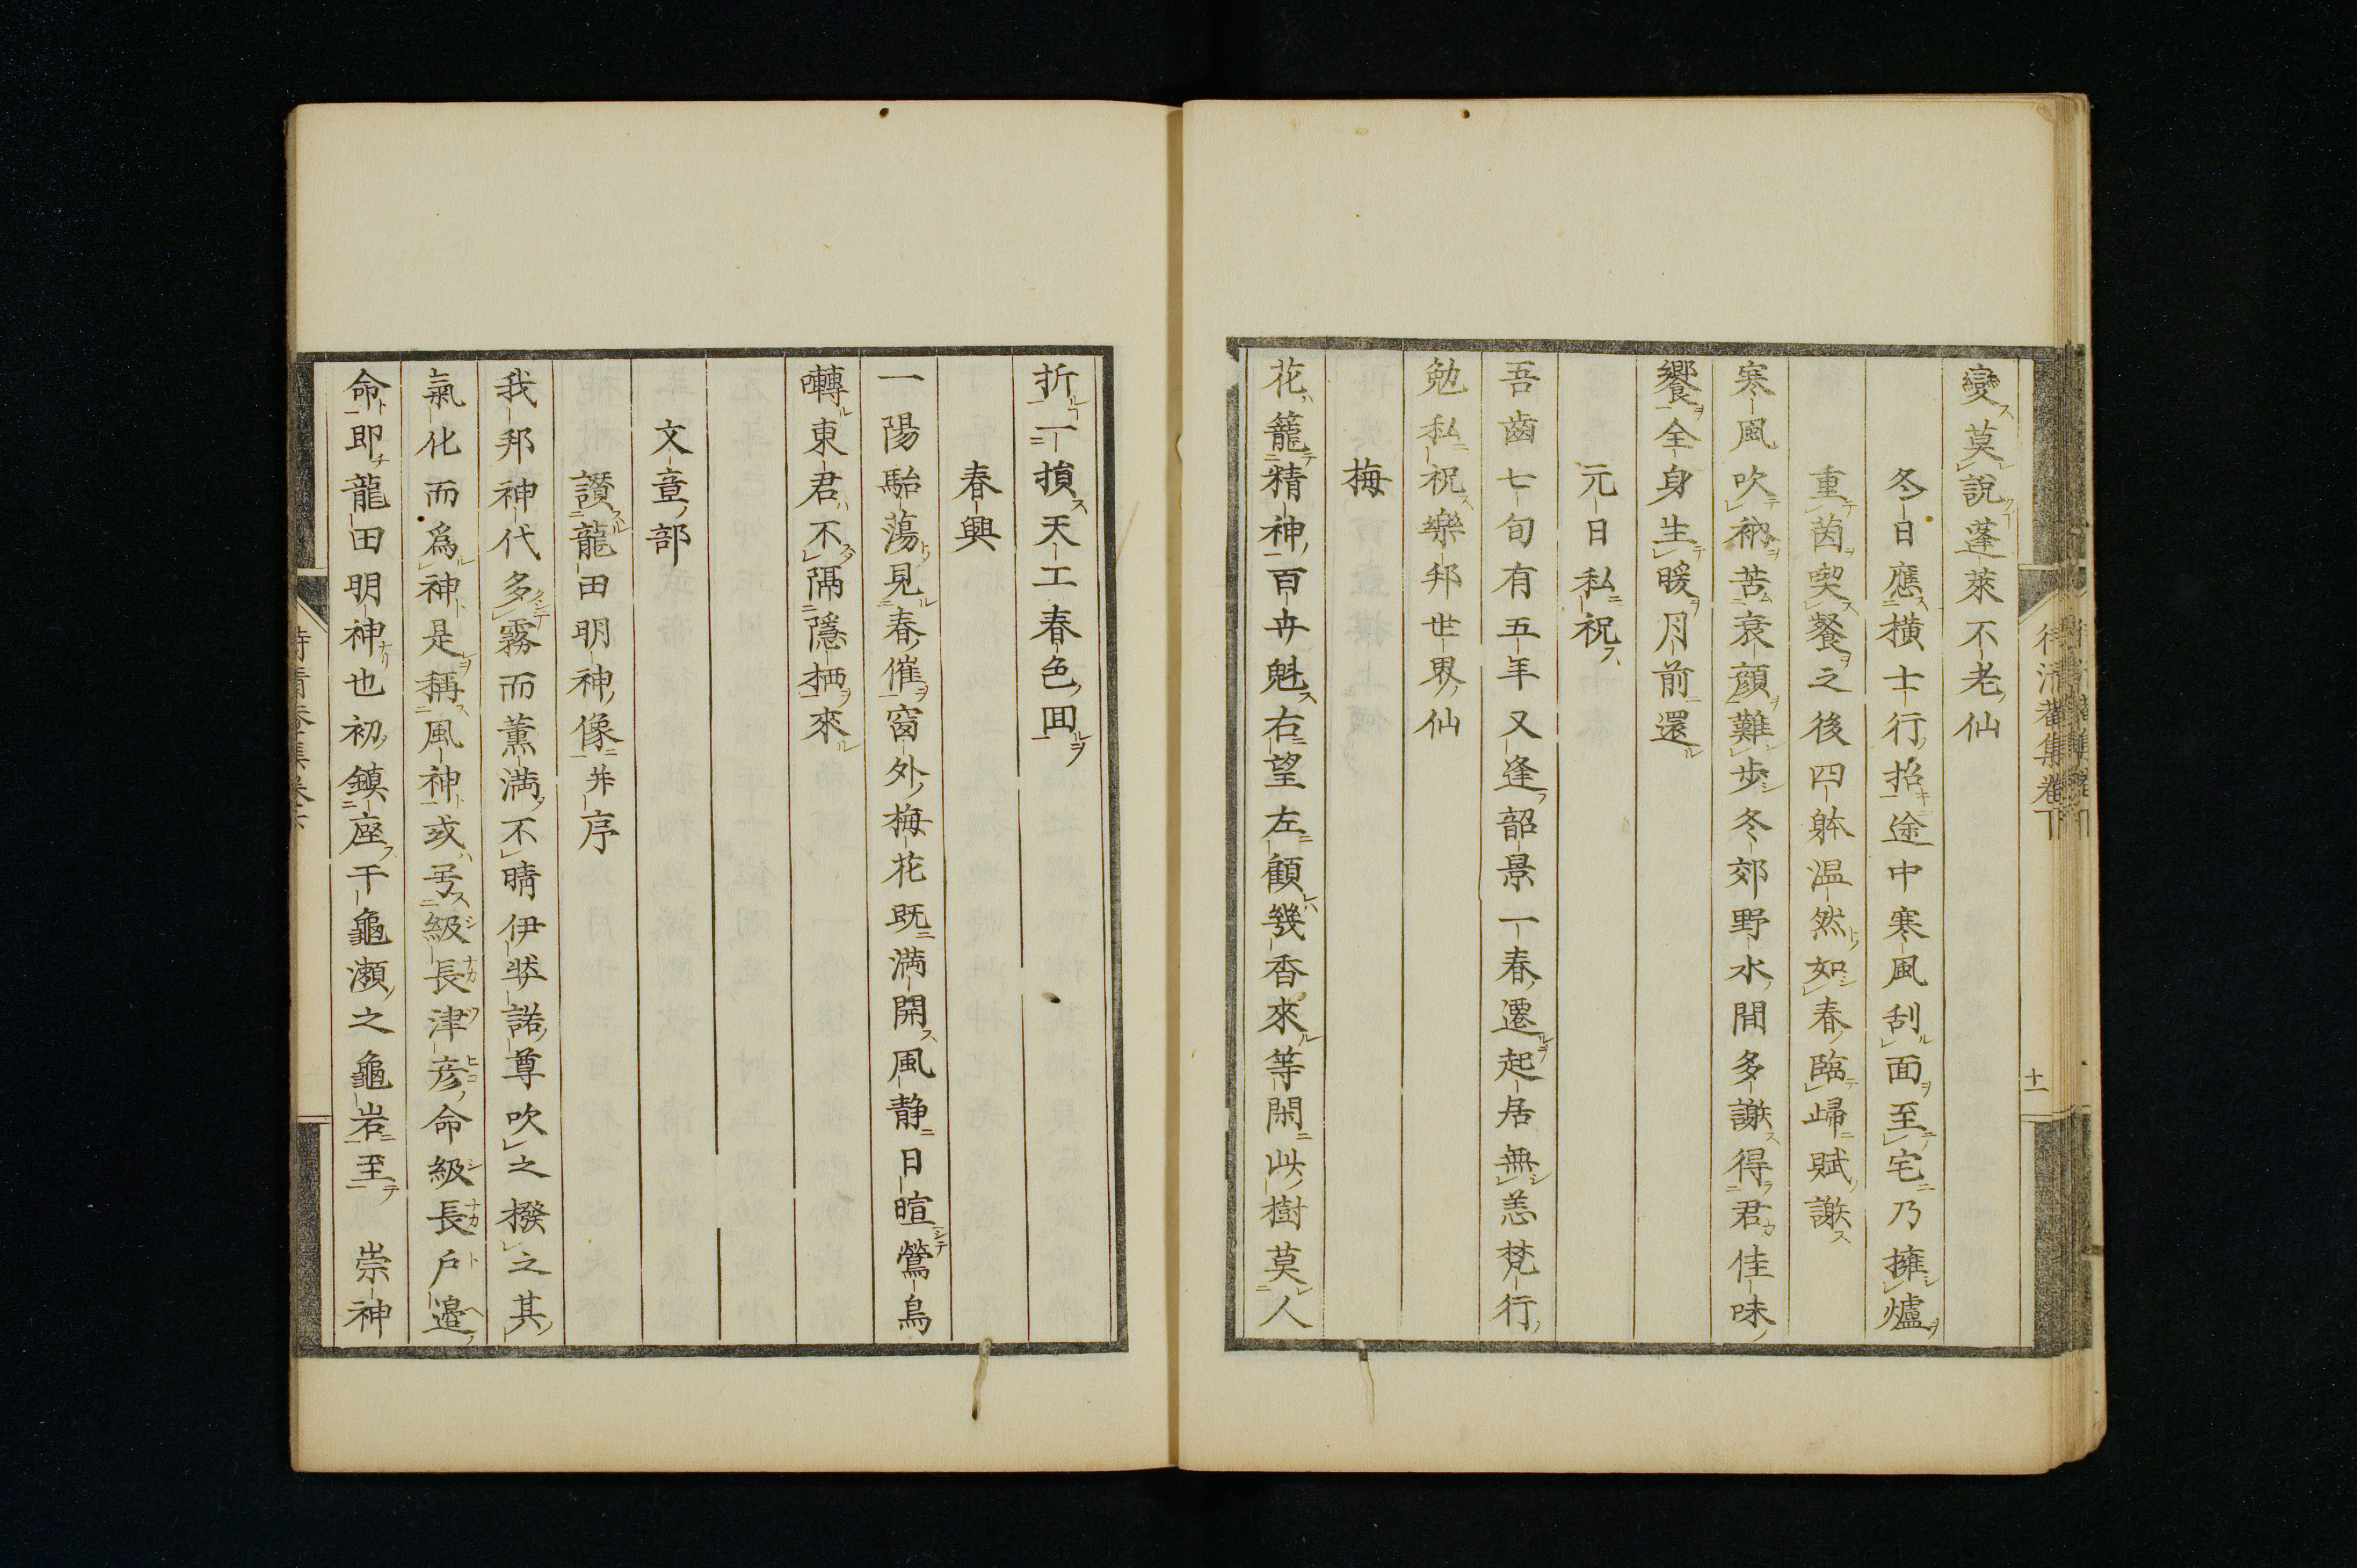 變莫說蓬萊不老仙
冬日應橫士行招途中寒風刮面至宅乃擁爐
重茵喫餐之後四躰温然如春臨歸賦謝
寒風吹衲苦衰顔難步冬郊野水間多謝得君佳味
饗全身生暖月前還
元日私祝
吾齒七旬有五年又逢韶景一春遷起居無恙梵行
勉私祝樂邦世界仙
梅
花籠精神百卉魁右望左顧幾香來等閑此樹莫人
折一損天工春色回
春興
一陽駘蕩見春催窗外梅花既満開風静日暄鶯鳥
囀東君不隔隱栖來
文章部
讃龍田明神像并序
我邦神代多霧而薰満不晴伊弉諾尊吹之撥之其
氣化而爲神是稱風神或号級長津彦命級長戶邉
命即龍田明神也初鎮座于龜瀬之龜岩至 崇神
待清菴集卷下
十一